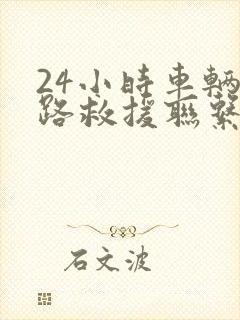 24小時車輛
路救援聯繫
石文波